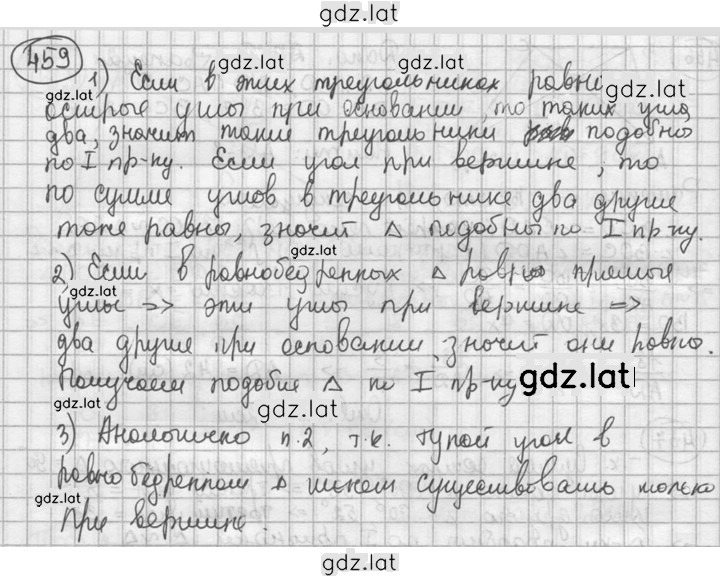 gdz.lat
459
gdz.lat
1) Если в этих треугольниках равны
gdz.lat
gdz.lat
острые углы при основании, то таких угла
два, значит такие треугольники подобны
gdz.lat
по I пр-ку. Если угол при вершине, то
по сумме углов в треугольнике два другие
тоже равны, значит △ подобны по I пр-ку.
gdz.lat
2) Если в равнобедренных △ равны прямые
gdz.lat
углы => эти углы при вершине =>
два другие при основании, значит они равны.
Получаем подобие △ по I пр-ку
gdz.lat
gdz.lat
gdz.lat
3) Аналогично п.2, т.к. тупой угол в
gdz.lat
равнобедренном △ может существовать только
при вершине.
gdz.lat
gdz.lat